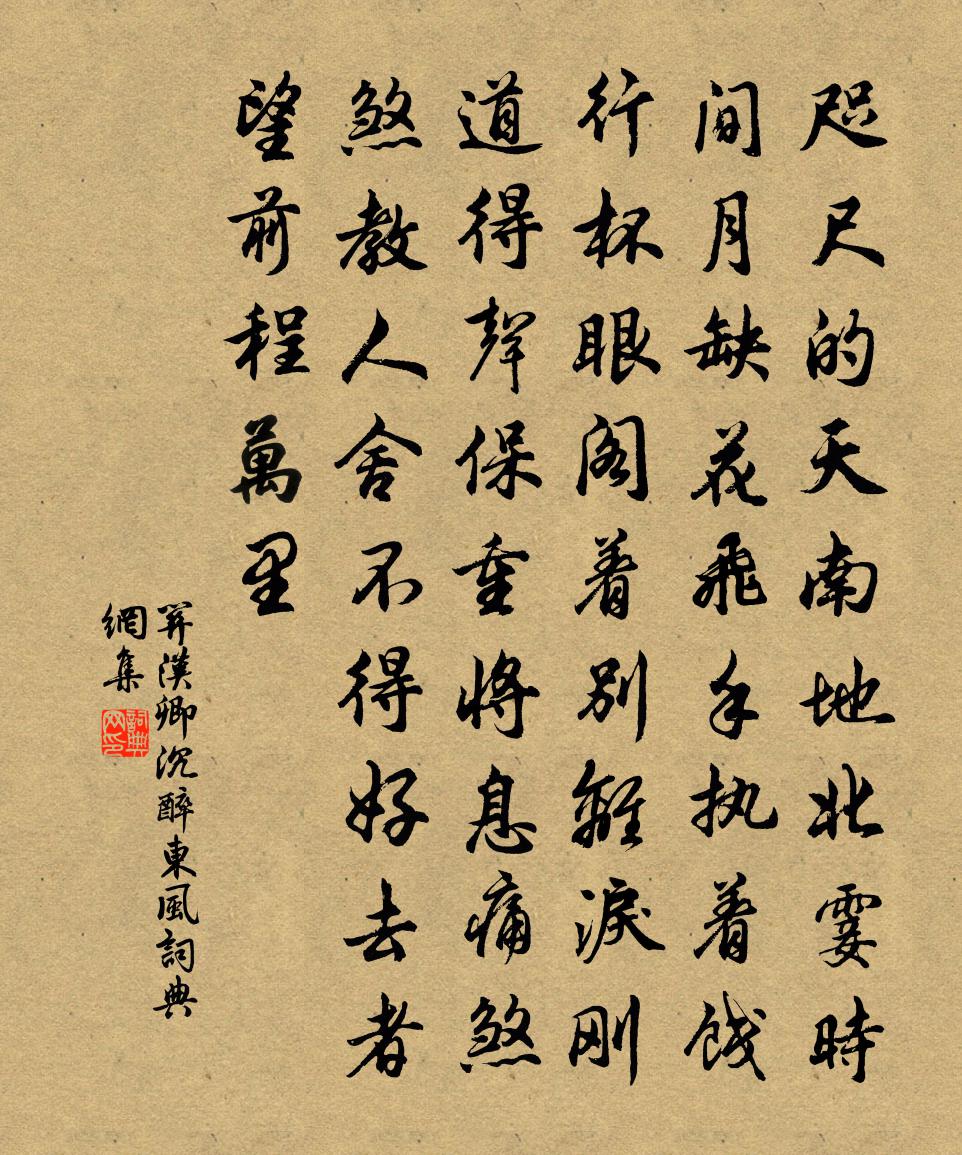 咫尺的天南地北霎時
間月缺花飛手执着饯
行杯眼阁着别離淚刚
道得聲保重將息痛煞
煞教人舍不得好去者
望前程萬里
关漢卿沉醉東風詞典
網集
詞典
网印